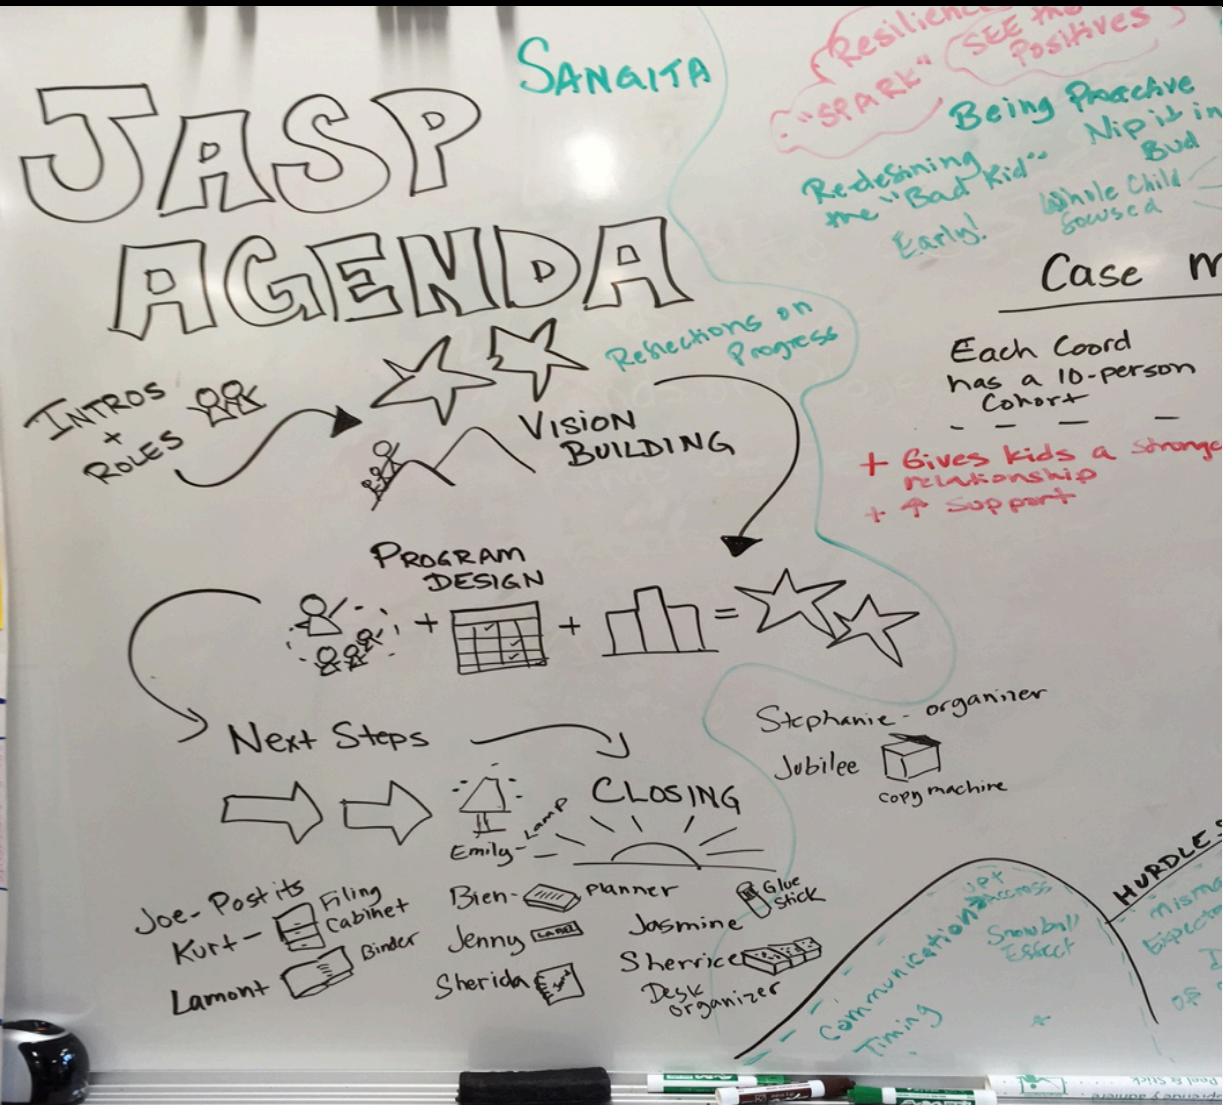 SANGITA
JASP
AGENDA
INTROS
+
ROLES
VISION
BUILDING
Reflections on
Progress
PROGRAM
DESIGN
+
+
=
Next Steps
CLOSING
Emily - Lamp
Joe - Post its
Kurt -
Filing
Cabinet
Lamont
Binder
Bien -
Planner
Jenny
LABEL
Sherida
Jasmine
Glue
Stick
Sherrice
Desk
organizer
Stephanie - organizer
Jubilee
copy machine
"SPARK"
SEE the
Positives
Being Proactive
Nip it in
Bud
Redefining
the "Bad Kid"
Early!
Whole Child
focused
Case M
Each Coord
has a 10-person
Cohort
+ Gives kids a
relationship
+ ↑ support
HURDLES
Communication
Timing
Snowball
Effect